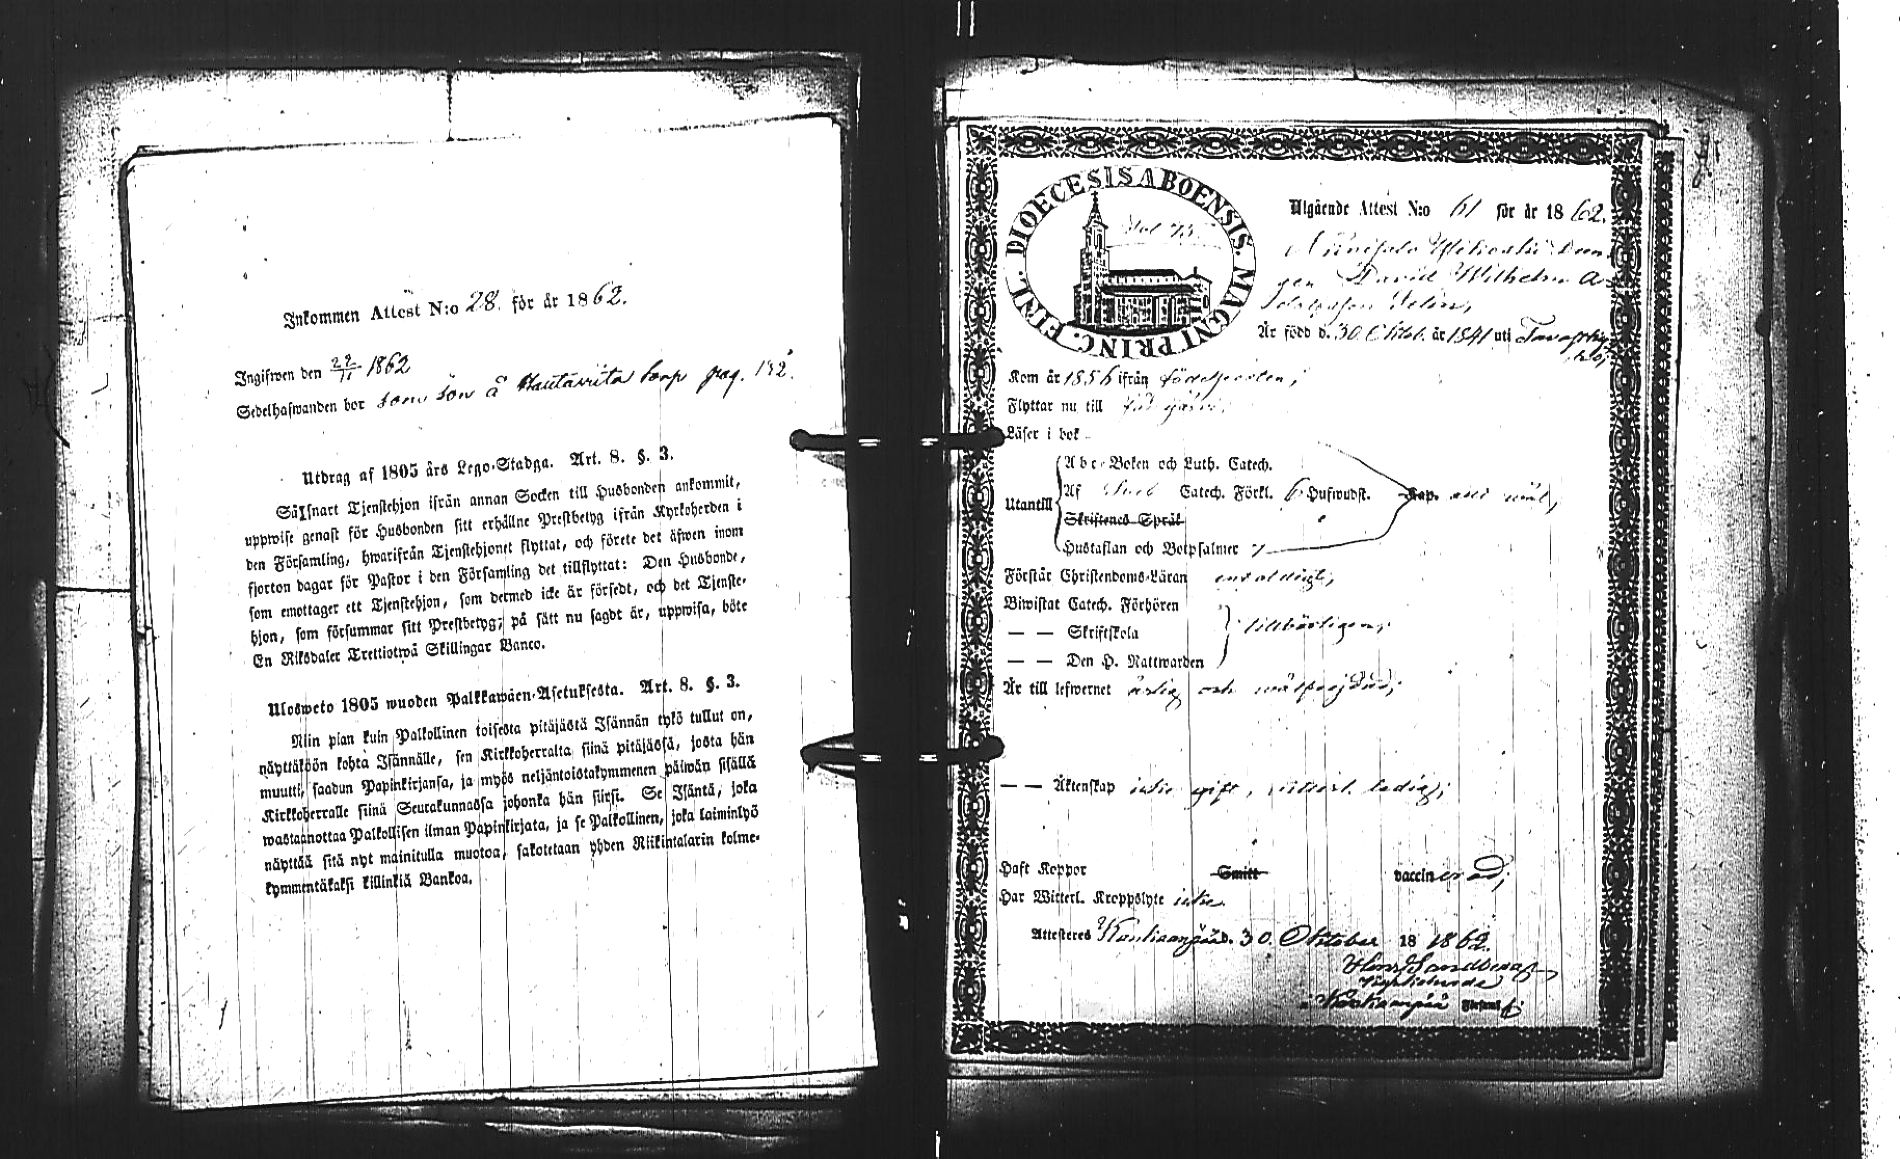 Inkommen Attest N:o 28. för år 1862.
Ingifwen den 22/11 1862
Sedelhafwanden bor som son å Rautavirta torp pag. 132.
Utdrag af 1805 års Lego-Stadga. Art. 8. §. 3.
Såssnart Tjenstehjon ifrån annan Socken till Husbonden ankommit,
uppwise genast för Husbonden sitt erhållne Prestbetyg ifrån Kyrkoherden i
den Församling, hwarifrån Tjenstehjonet flyttat, och förete det äfwen inom
fjorton dagar för Pastor i den Församling det tillflyttat: Den Husbonde,
som emottager ett Tjenstehjon, som dermed icke är försedt, och det Tjenste-
hjon, som försummar sitt Prestbetyg, på sätt nu sagdt är, uppwisa, böte
En Riksdaler Trettiotwå Skillingar Banco.
Ulosweto 1805 wuoden Palkkawäen-Asetuksesta. Art. 8. §. 3.
Niin pian kuin Palkollinen toisesta pitäjästä Isännän tykö tullut on,
näyttäköön kohta Isännälle, sen Kirkkoherralta siinä pitäjässä, josta hän
muutti, saadun Papinkirjansa, ja myös neljäntoistakymmenen päiwän sisällä
Kirkkoherralle siinä Seurakunnassa johonka hän siirsi. Se Isäntä, joka
wastaanottaa Palkollisen ilman Papinkirjata, ja se Palkollinen, joka laiminlyö
näyttää sitä nyt mainitulla muotoa, sakotetaan yhden Riikintalarin kolme-
kymmentäkaksi killinkiä Bankoa.
DIOECESIS ABOENSIS. MAGNI PRINC. FINL.
Utgående Attest N:o 61 för år 1862.
David Wilhelm
Är född d. 30 Oktob. år 1841 uti
Kom år 1856 ifrån födelseorten,
Flyttar nu till
Läser i bok
Utantill
Abc-Boken och Luth. Catech.
Af Catech. Förkl. 6 Hufwudst. Kap.
Skriftenes Språk
Hustaflan och Botpsalmer
Förstår Christendoms-Läran enfaldigt,
Biwistat Catech. Förhören
— — Skriftskola tillbörligen,
— — Den H. Nattwarden
Är till lefwernet ärlig och wälfrejdad,
— — Äktenskap icke gift, ledig,
Haft Koppor Smitt vaccinerad,
Har Witterl. Kroppslyte icke.
Attesteras Kankaanpää d. 30. Oktober 18 1862.
Kankaanpää Församl